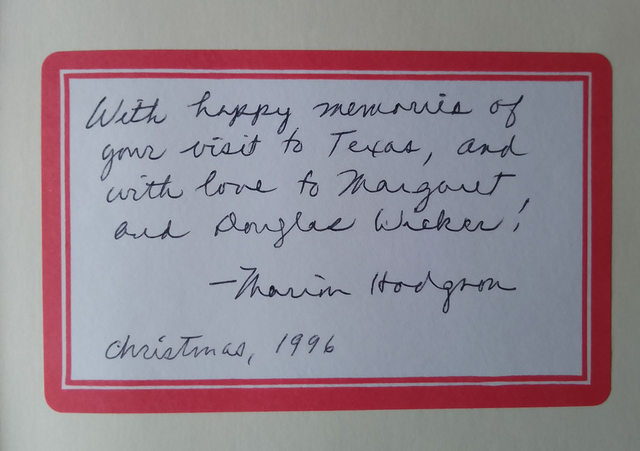 With happy memories of
your visit to Texas, and
with love to Margaret,
and Douglas Wicker!
—Marion Hodgson
Christmas, 1996